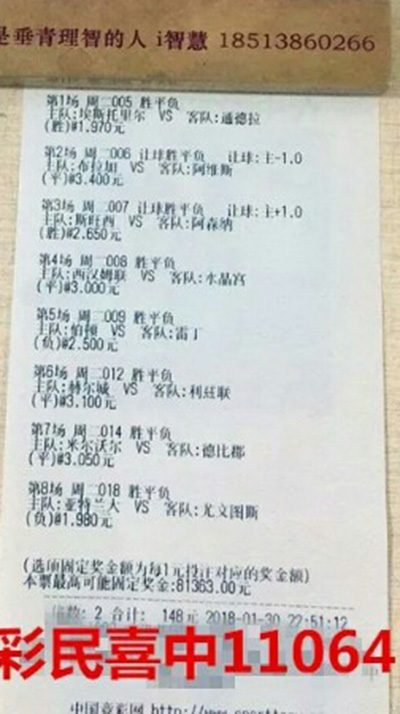 是垂青理智的人 i智慧 18513860266
第1场 周二005 胜平负
主队:埃斯托里尔 VS 客队:通德拉
(胜)@1.970元
第2场 周二006 让球胜平负 让球:主-1.0
主队:布拉加 VS 客队:阿维斯
(平)@3.400元
第3场 周二007 让球胜平负 让球:主+1.0
主队:斯旺西 VS 客队:阿森纳
(胜)@2.650元
第4场 周二008 胜平负
主队:西汉姆联 VS 客队:水晶宫
(平)@3.000元
第5场 周二009 胜平负
主队:伯顿 VS 客队:雷丁
(负)@2.500元
第6场 周二012 胜平负
主队:赫尔城 VS 客队:利兹联
(平)@3.100元
第7场 周二014 胜平负
主队:米尔沃尔 VS 客队:德比郡
(平)@3.050元
第8场 周二018 胜平负
主队:亚特兰大 VS 客队:尤文图斯
(负)@1.980元
(选项固定奖金额为每1元投注对应的奖金额)
本票最高可能固定奖金:81363.00元
倍数: 2 合计: 148元 2018-01-30 22:51:12
彩民喜中11064
中国竞彩网 http://www.sportt